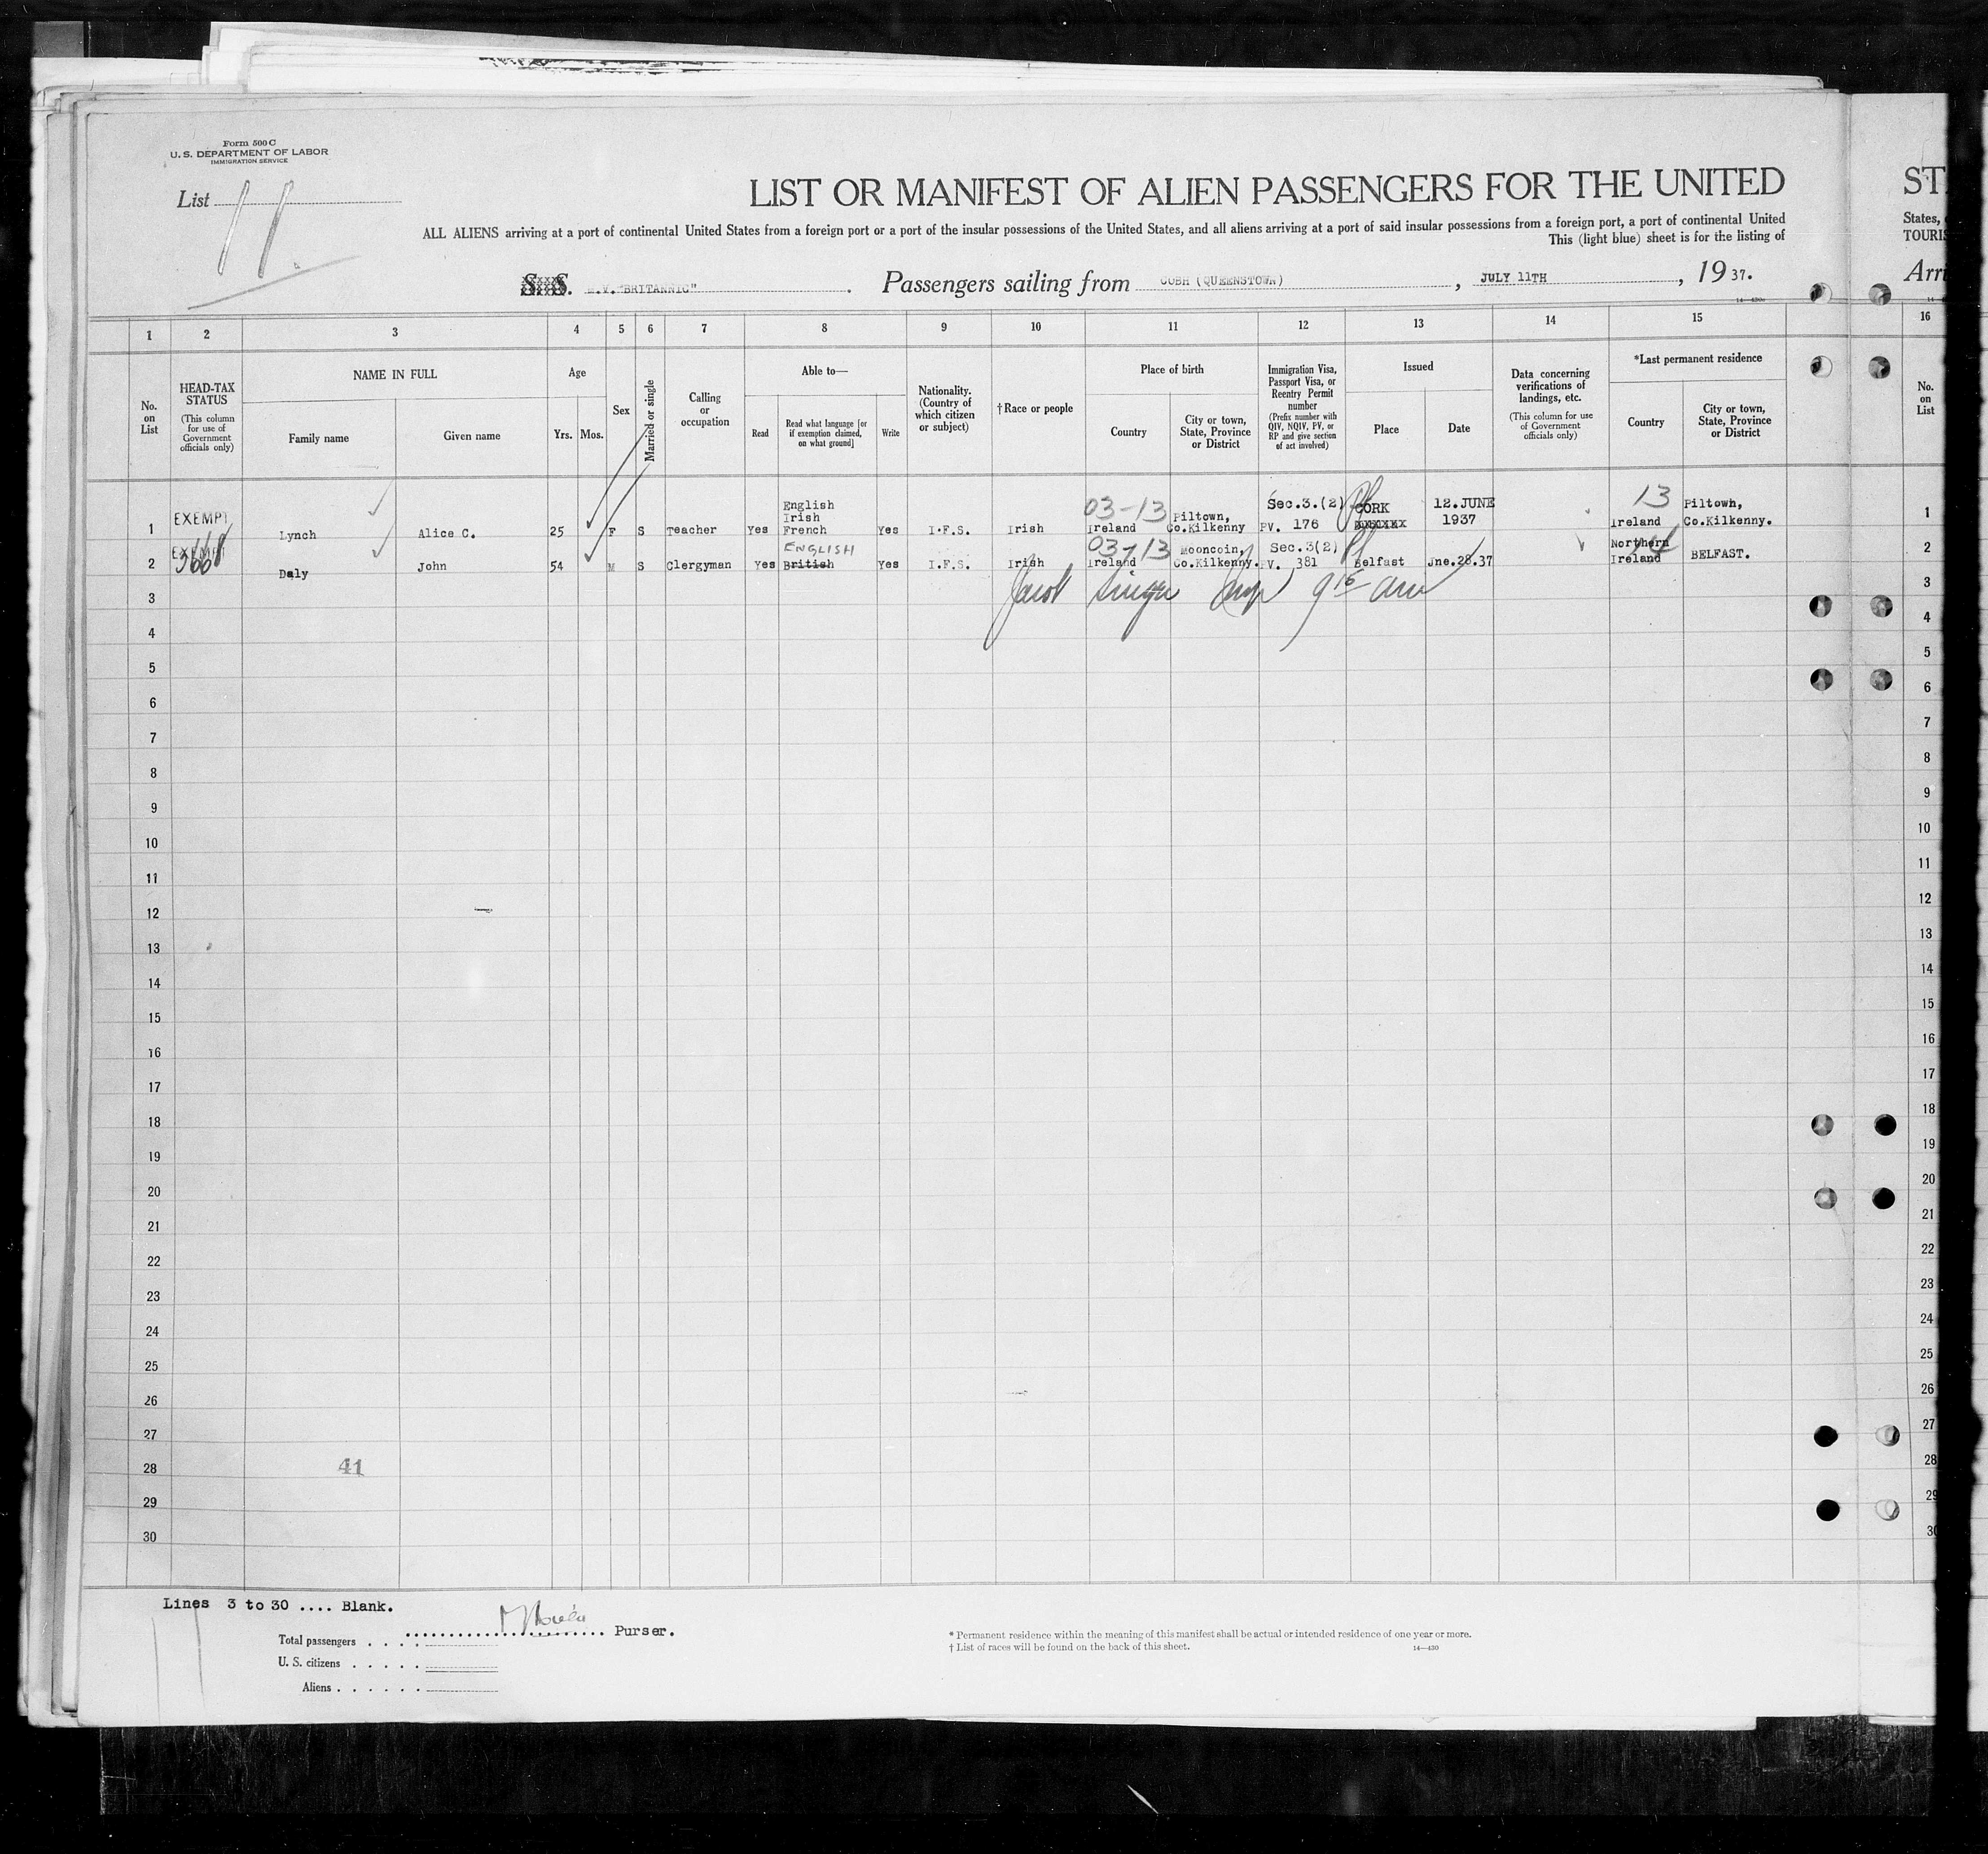 Form 500 C
U. S. DEPARTMENT OF LABOR
IMMIGRATION SERVICE
List 11
LIST OR MANIFEST OF ALIEN PASSENGERS FOR THE UNITED
ST
ALL ALIENS arriving at a port of continental United States from a foreign port or a port of the insular possessions of the United States, and all aliens arriving at a port of said insular possessions from a foreign port, a port of continental United
States,
This (light blue) sheet is for the listing of
TOURIS
S. S. M.V. "BRITANNIC" . Passengers sailing from COBH (QUEENSTOWN) , JULY 11TH , 19 37.
Arri
14—430
1 2 3 4 5 6 7 8 9 10 11 12 13 14 15 16
No. on List
HEAD-TAX STATUS
(This column for use of Government officials only)
NAME IN FULL
Family name
Given name
Age
Yrs. Mos.
Sex
Married or single
Calling or occupation
Able to—
Read
Read what language [or if exemption claimed, on what ground]
Write
Nationality. (Country of which citizen or subject)
† Race or people
Place of birth
Country
City or town, State, Province or District
Immigration Visa, Passport Visa, or Reentry Permit number
(Prefix number with QIV, NQIV, PV, or RP and give section of act involved)
Issued
Place
Date
Data concerning verifications of landings, etc.
(This column for use of Government officials only)
*Last permanent residence
Country
City or town, State, Province or District
No. on List
1 EXEMPT Lynch Alice C. 25 F S Teacher Yes English Irish French Yes I.F.S. Irish 03-13 Ireland Piltown, Co.Kilkenny Sec.3.(2) PV. 176 CORK 12.JUNE 1937 13 Ireland Piltown, Co.Kilkenny. 1
2 EXEMPT 3668 Daly John 54 M S Clergyman Yes ENGLISH British Yes I.F.S. Irish 03-13 Ireland Mooncoin, Co.Kilkenny. Sec.3(2) PV. 381 Belfast Jne.28.37 Northern Ireland 14 BELFAST. 2
3 3
4 4
5 5
6 6
7 7
8 8
9 9
10 10
11 11
12 12
13 13
14 14
15 15
16 16
17 17
18 18
19 19
20 20
21 21
22 22
23 23
24 24
25 25
26 26
27 27
28 41 28
29 29
30 30
Lines 3 to 30 .... Blank.
Purser.
Total passengers
U. S. citizens
Aliens
* Permanent residence within the meaning of this manifest shall be actual or intended residence of one year or more.
† List of races will be found on the back of this sheet.
14—430